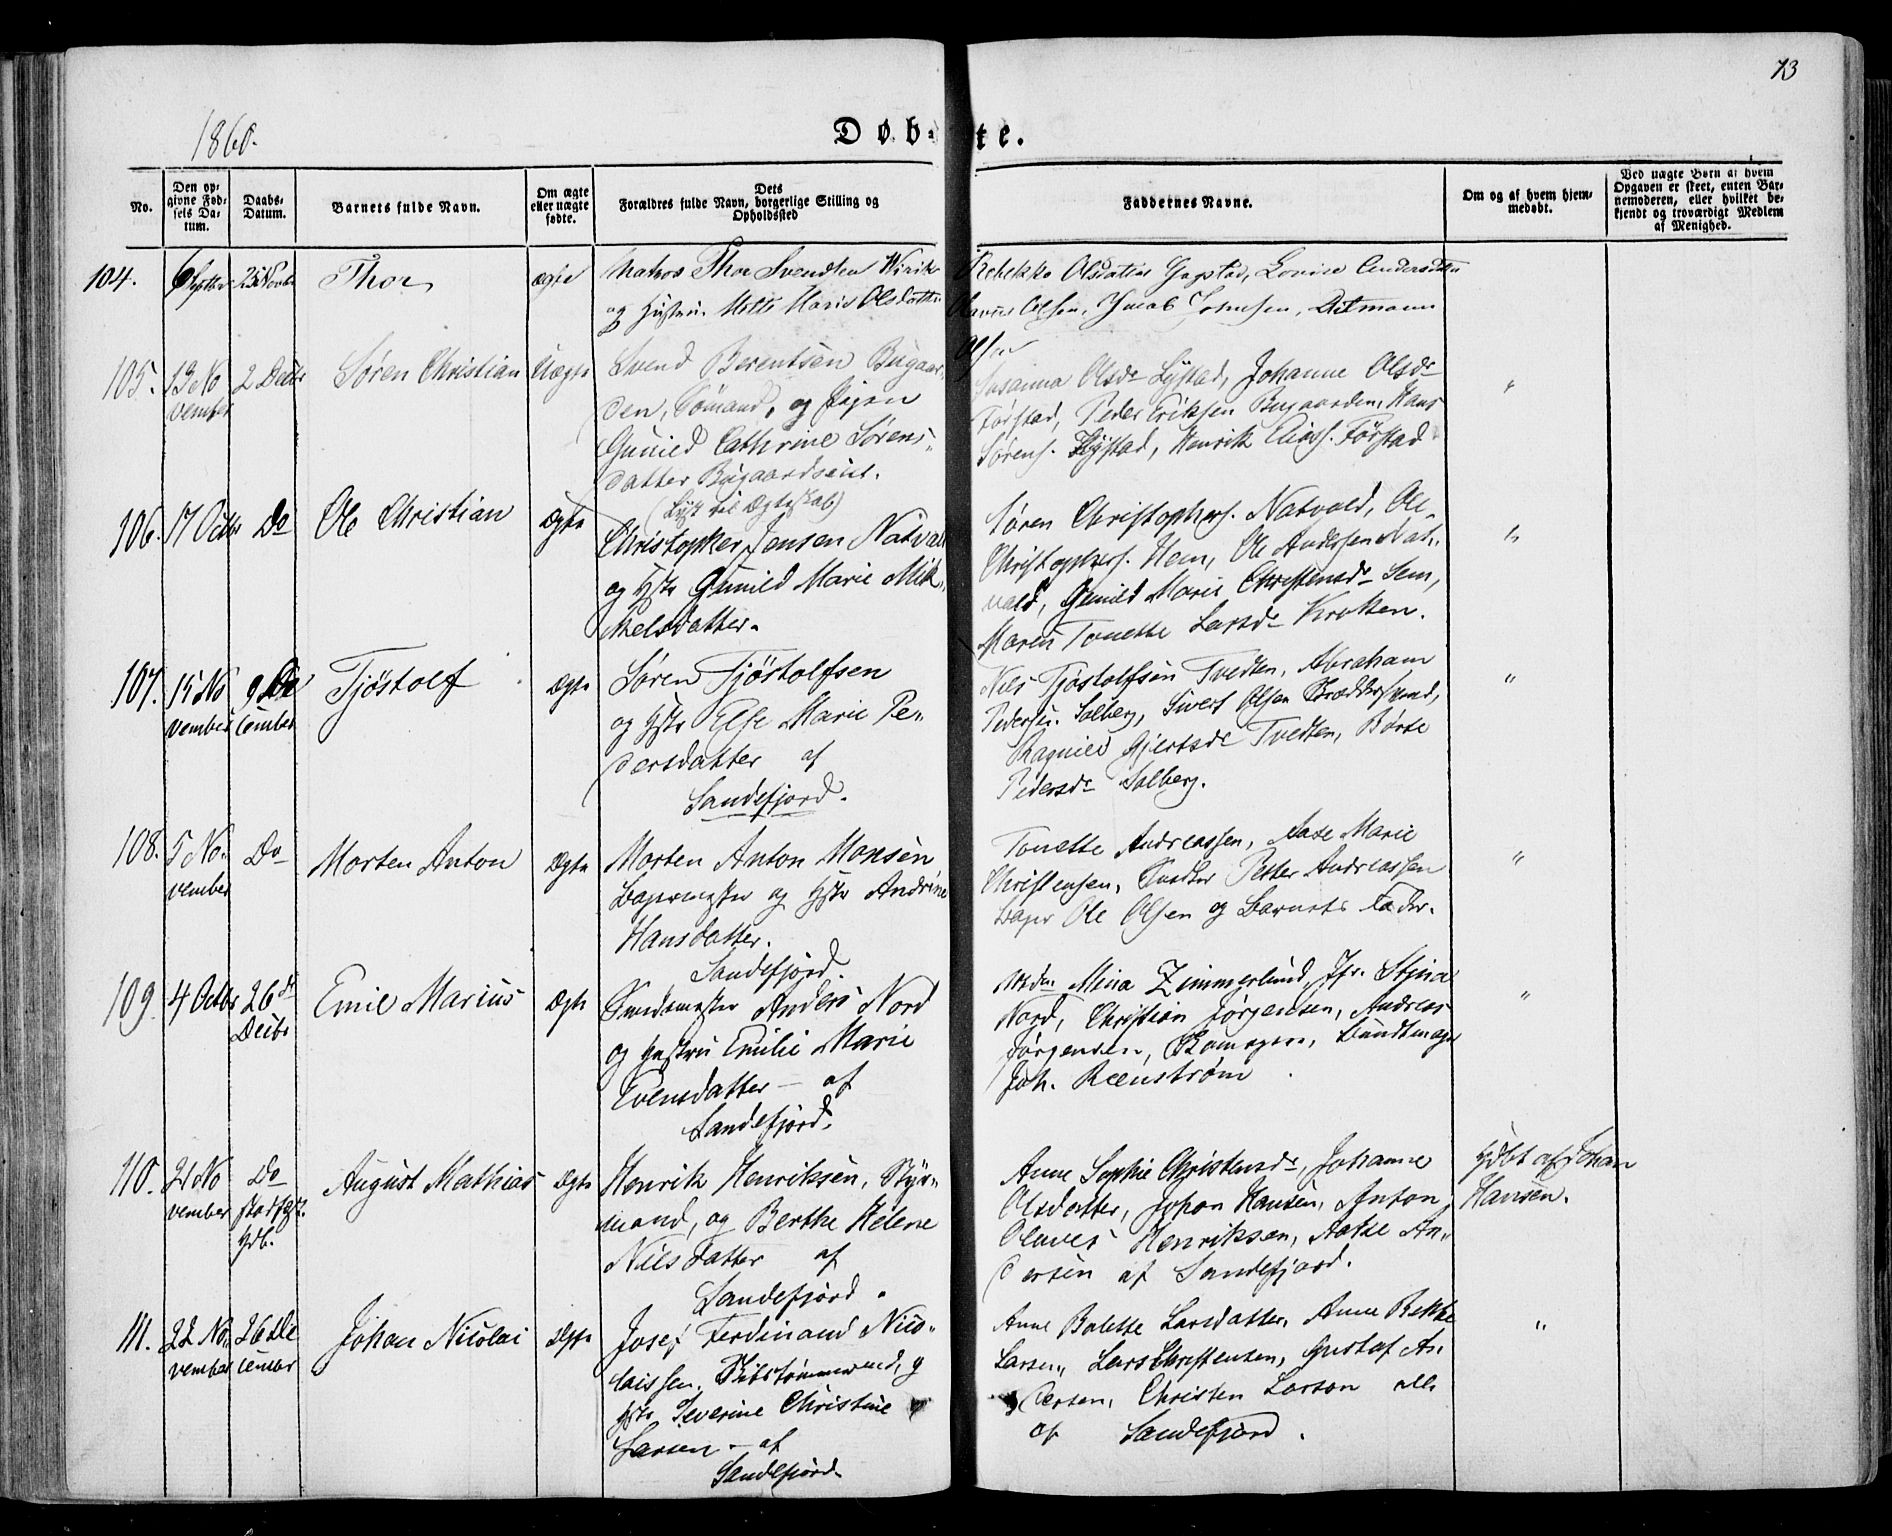 73
1860.
Døb-te.
No.
Den op-
givne Fød-
sels Da-
tum.
Daabs-
Datum.
Barnets fulde Navn.
Om ægte
eller uægte
fødte.
Dets
Forældres fulde Navn, borgerlige Stilling og
Opholdssted
Faddernes Navne.
Om og af hvem hjem-
medøbt.
Ved uægte Børn af hvem
Opgaven er skeet, enten Bar-
nemoderen, eller hvilket be-
kjendt og troværdigt Medlem
af Menighed.
104.
6 Septbr
25 Novbr
Thor
ægte
Matros Thor Svendsen
og Hustru Mette Marie Olsdatter
Rebekka Olsdatter Lovise Andersdatter
Olsen, Jacob Johnsen, Ditmann
Olsen
105.
13 No
vember
2 Decbr
Søren Christian
Uægte
Svend Berentsen Bugaar-
den, Sømand, og Pigen
Gunild Cathrine Sørens-
datter Bugaardseie.
(Lyst til Ægteskab)
Susanna Olsdr Lystad, Johanne Olsdr
Førstad, Peder Eriksen Bugaarden, Hans
Sørens. Lystad, Henrik Eliass. Førstad
"
106.
17 Octbr
Do
Ole Christian
Ægte
Christopher Jensen Natvall
og Hstr Gunild Marie Mik-
kelsdatter.
Søren Christophers. Natvald, Ole
Christophers. Hem, Ole Andersen Nat-
vald, Gunild Marie Christensdr Sem,
Maren Tonette Larsdr Krokken.
"
107.
15 No
vember
9 De
cember
Tjöstolf
Ægte
Søren Tjöstolfsen
og Hstr Else Marie Pe-
dersdatter af
Sandefjord.
Nils Tjöstolfsen Tvedten, Abraham
Peders. Solberg, Sivert Olsen
Ragnild Gjertsdr Tvedten, Børte
Pedersdr Solberg.
"
108.
5 No-
vember
Do
Morten Anton
Ægte
Morten Anton Monsen
Bagermester og Hstr Andrine
Hansdatter.
Sandefjord.
Tonette Andreassen, Aase Marie
Christensen, Petter Andreassen
Bager Ole Olsen og Barnets Fader.
"
109.
4 Octbr
26 de
Decbr
Emil Marius
Ægte
Smedemester Anders Nord
og Hustru Emilie Marie
Evensdatter - af
Sandefjord.
Mdm Mina Zimmerlund, Jfr. Stina
Nord, Christian Jørgensen, Andreas
Jørgensen, Buntmager
Joh. Reenstrøm
"
110.
21 No
vember
Do
stadfæst.
Hdb.
August Mathias
Ægte
Henrik Henriksen, Styr-
mand, og Berthe Helene
Nilsdatter af
Sandefjord.
Anne Sophie Christensdr, Johanne
Olsdatter, Johan Hansen, Anton
Olaves Henriksen, An-
dersen af Sandefjord.
Hdbt af Johan
Hansen.
111.
22 No-
vember
26 De
cember
Johan Nicolai
Ægte
Josef Ferdinand Nico-
laissen, Skibstømmermand, og
Hstr Severine Christine
Larsen - af
Sandefjord.
Anne Bolette Larsdatter, Anne Bekke
Larsen, Lars Christensen, Gustaf An-
dersen, Christen Larson alle
af Sandefjord.
"